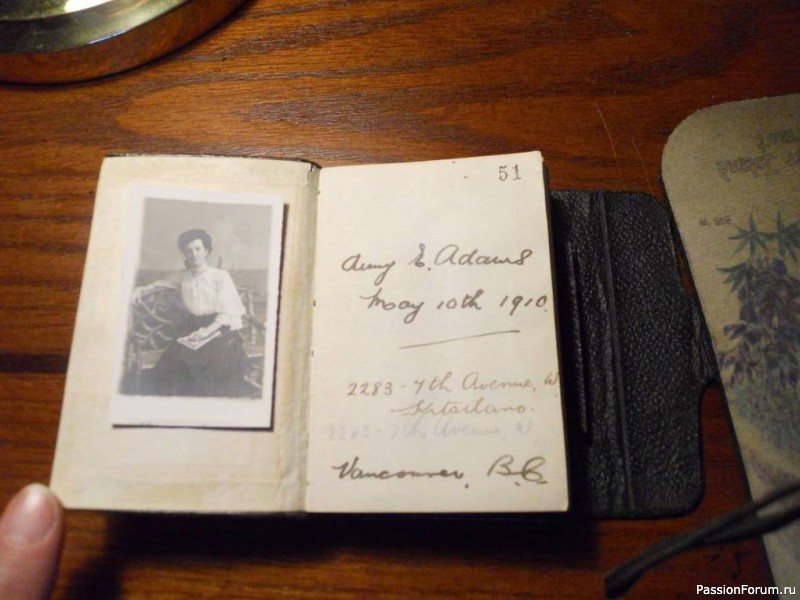 51
Amy E. Adams
May 10th 1910.
2283 - 7th Avenue, W.
Kitsilano.
2283 - 7th Avenue W.
Vancouver, B.C
PassionForum.ru